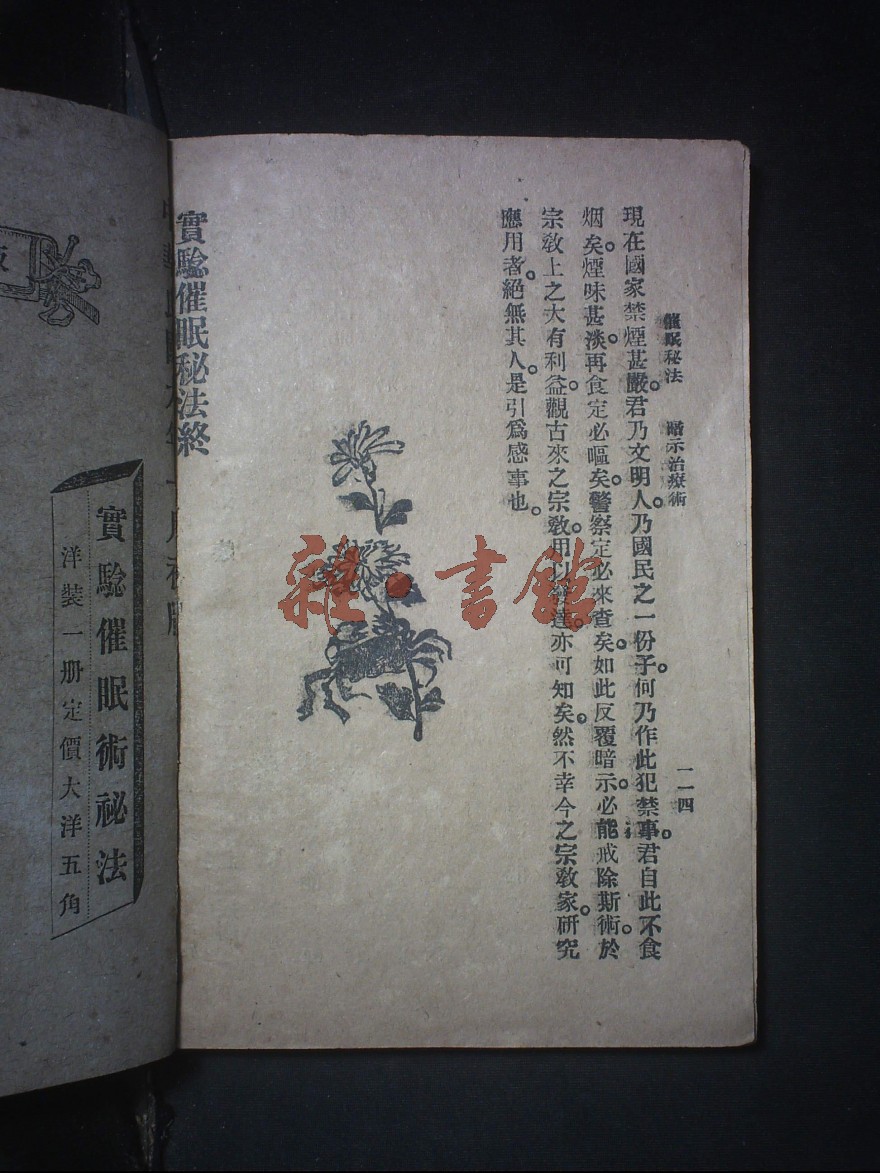 催眠秘法　暗示治療術
一一四
現在國家禁煙甚嚴。君乃文明人。乃國民之一份子。何乃作此犯禁事。君自此不食
烟矣。煙味甚淡。再食定必嘔矣。警察定必來查矣。如此反覆暗示。必能戒除。斯術於
宗教上之大有利益。觀古來之宗教。用以發達。亦可知矣。然不幸今之宗教家。研究
應用者。絕無其人。是引爲感事也。
實驗催眠秘法終
雜·書館
實驗催眠術祕法
洋裝一册定價大洋五角